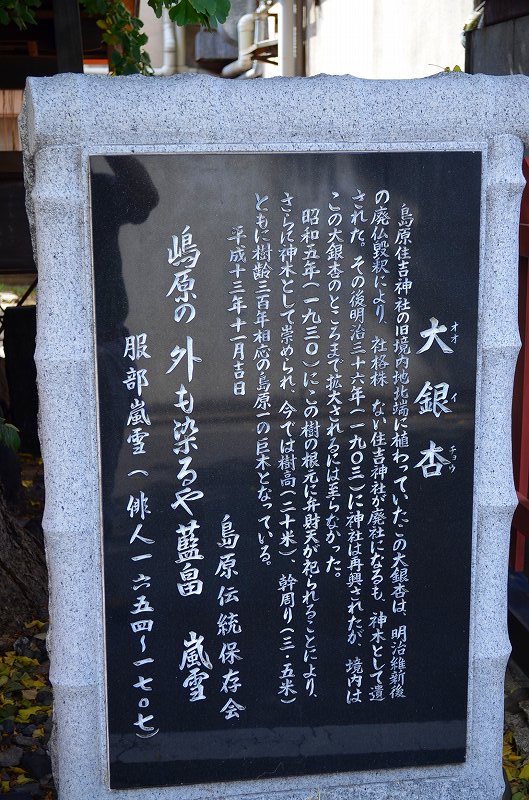 大銀杏
オオイチョウ
島原住吉神社の旧境内地北端に植わっていたこの大銀杏は、明治維新後
の廃仏毀釈により、社格株　ない住吉神社が廃社になるも、神木として遺
された。その後明治三十六年（一九〇三）に神社は再興されたが、境内は
この大銀杏のところまで拡大されるには至らなかった。
昭和五年（一九三〇）にこの樹の根元に弁財天が祀られることにより、
さらに神木として崇められ、今では樹高（二十米）、幹周り（三・五米）
ともに樹齢三百年相応の島原一の巨木となっている。
平成十三年十一月吉日
島原伝統保存会
嶋原の　外も染るや　藍畠　嵐雪
服部嵐雪（俳人一六五四〜一七〇七）